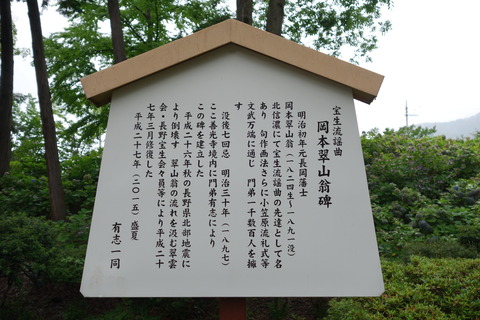 宝生流謡曲
岡本翠山翁碑
明治初年元長岡藩士
岡本翠山翁(一八二四生~一八九一没)
北信濃にて宝生流謡曲の先達として名
あり 句作画法さらに小笠原流礼式等
文武万端に通じ 門弟一千数百人を擁
す
没後七回忌 明治三十年(一八九七)
ここ善光寺境内に門弟有志により
この碑を建立した
平成二十六年秋の長野県北部地震に
より倒壊す 翠山翁の流れを汲む翠雲
会・長野宝生会々員等により平成二十
七年三月修復した
平成二十七年(二〇一五)盛夏
有志一同